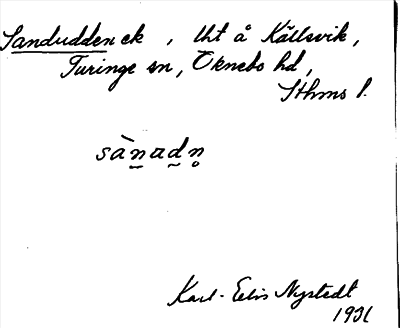 Sanduddenek, lht å Källvik,
Turinge sn, Öknebo hd,
Sthms l.
sànadn̥
Karl-Eric Nystedt
1931